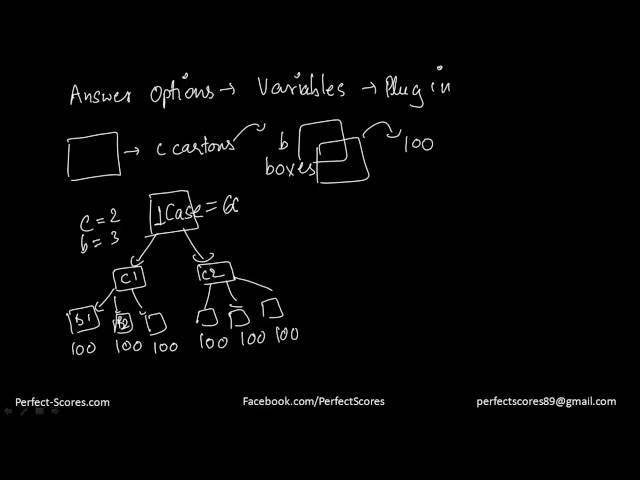 Answer Options → Variables → Plug in
→ c cartons b boxes → 100
c = 2
b = 3
1 Case =
C1 C2
B1 B2
100 100 100 100 100 100
Perfect-Scores.com Facebook.com/PerfectScores perfectscores89@gmail.com